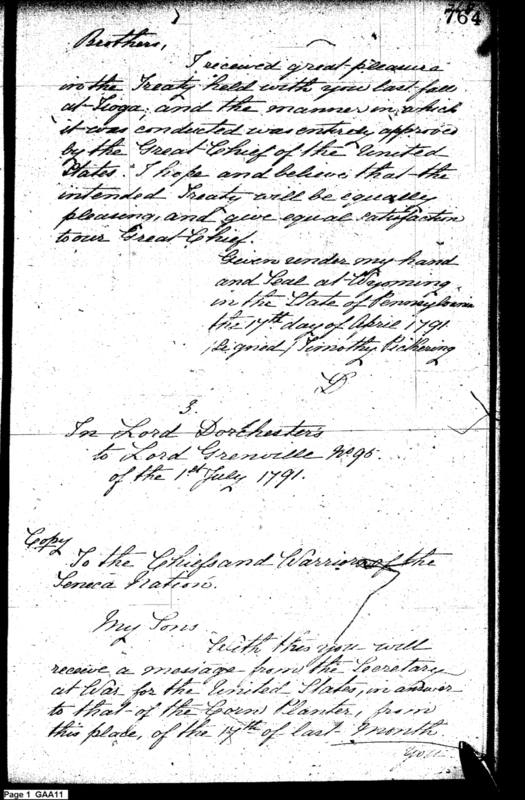 764
Brothers,
I received great pleasure
in the Treaty held with you last fall
at Tioga; and the manner in which
it was conducted was entirely approved
by the Great Chief of the United
States. I hope and believe that the
intended Treaty will be equally
pleasing, and give equal satisfaction
to our Great Chief.
Given under my hand
and Seal at Wyoming
in the State of Pennsylvania
the 17th day of April 1791.
(Signed) Timothy Pickering
D
3.
In Lord Dorchester's
to Lord Grenville No. 95.
of the 1st July 1791.
Copy
To the Chiefs and Warriors of the
Seneca Nation.
My Sons
With this you will
receive a message from the Secretary
at War for the United States, in answer
to that of the Corn Planter, from
this place, of the 17th of last month
You
Page 1 GAA11